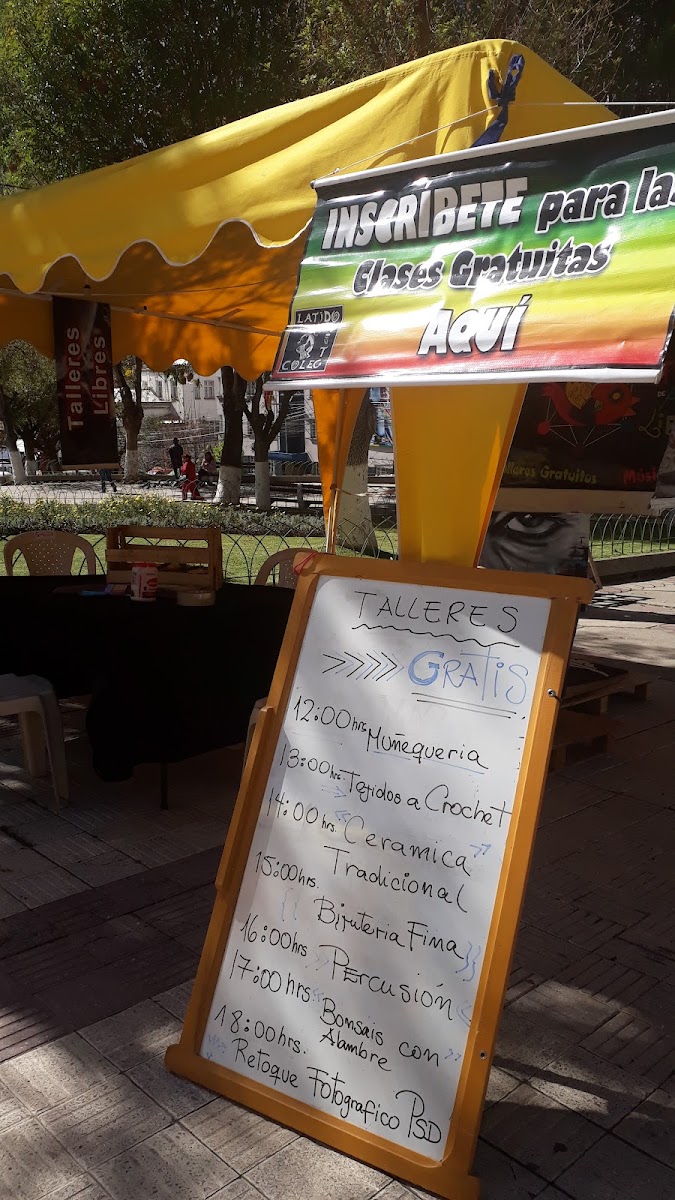 INSCRÍBETE para las
Clases Gratuitas
AQUÍ
LATIDO
COLEG
Talleres
Libres
Talleres Gratuitos
TALLERES
GRATIS
12:00hrs Muñequeria
13:00hrs. Tejidos a Crochet
14:00hrs. Ceramica
Tradicional
15:00hrs. Bijuteria Fina
16:00hrs PERCUSIÓN
17:00hrs Bonsais con
Alambre
18:00hrs.
Retoque Fotografico PSD